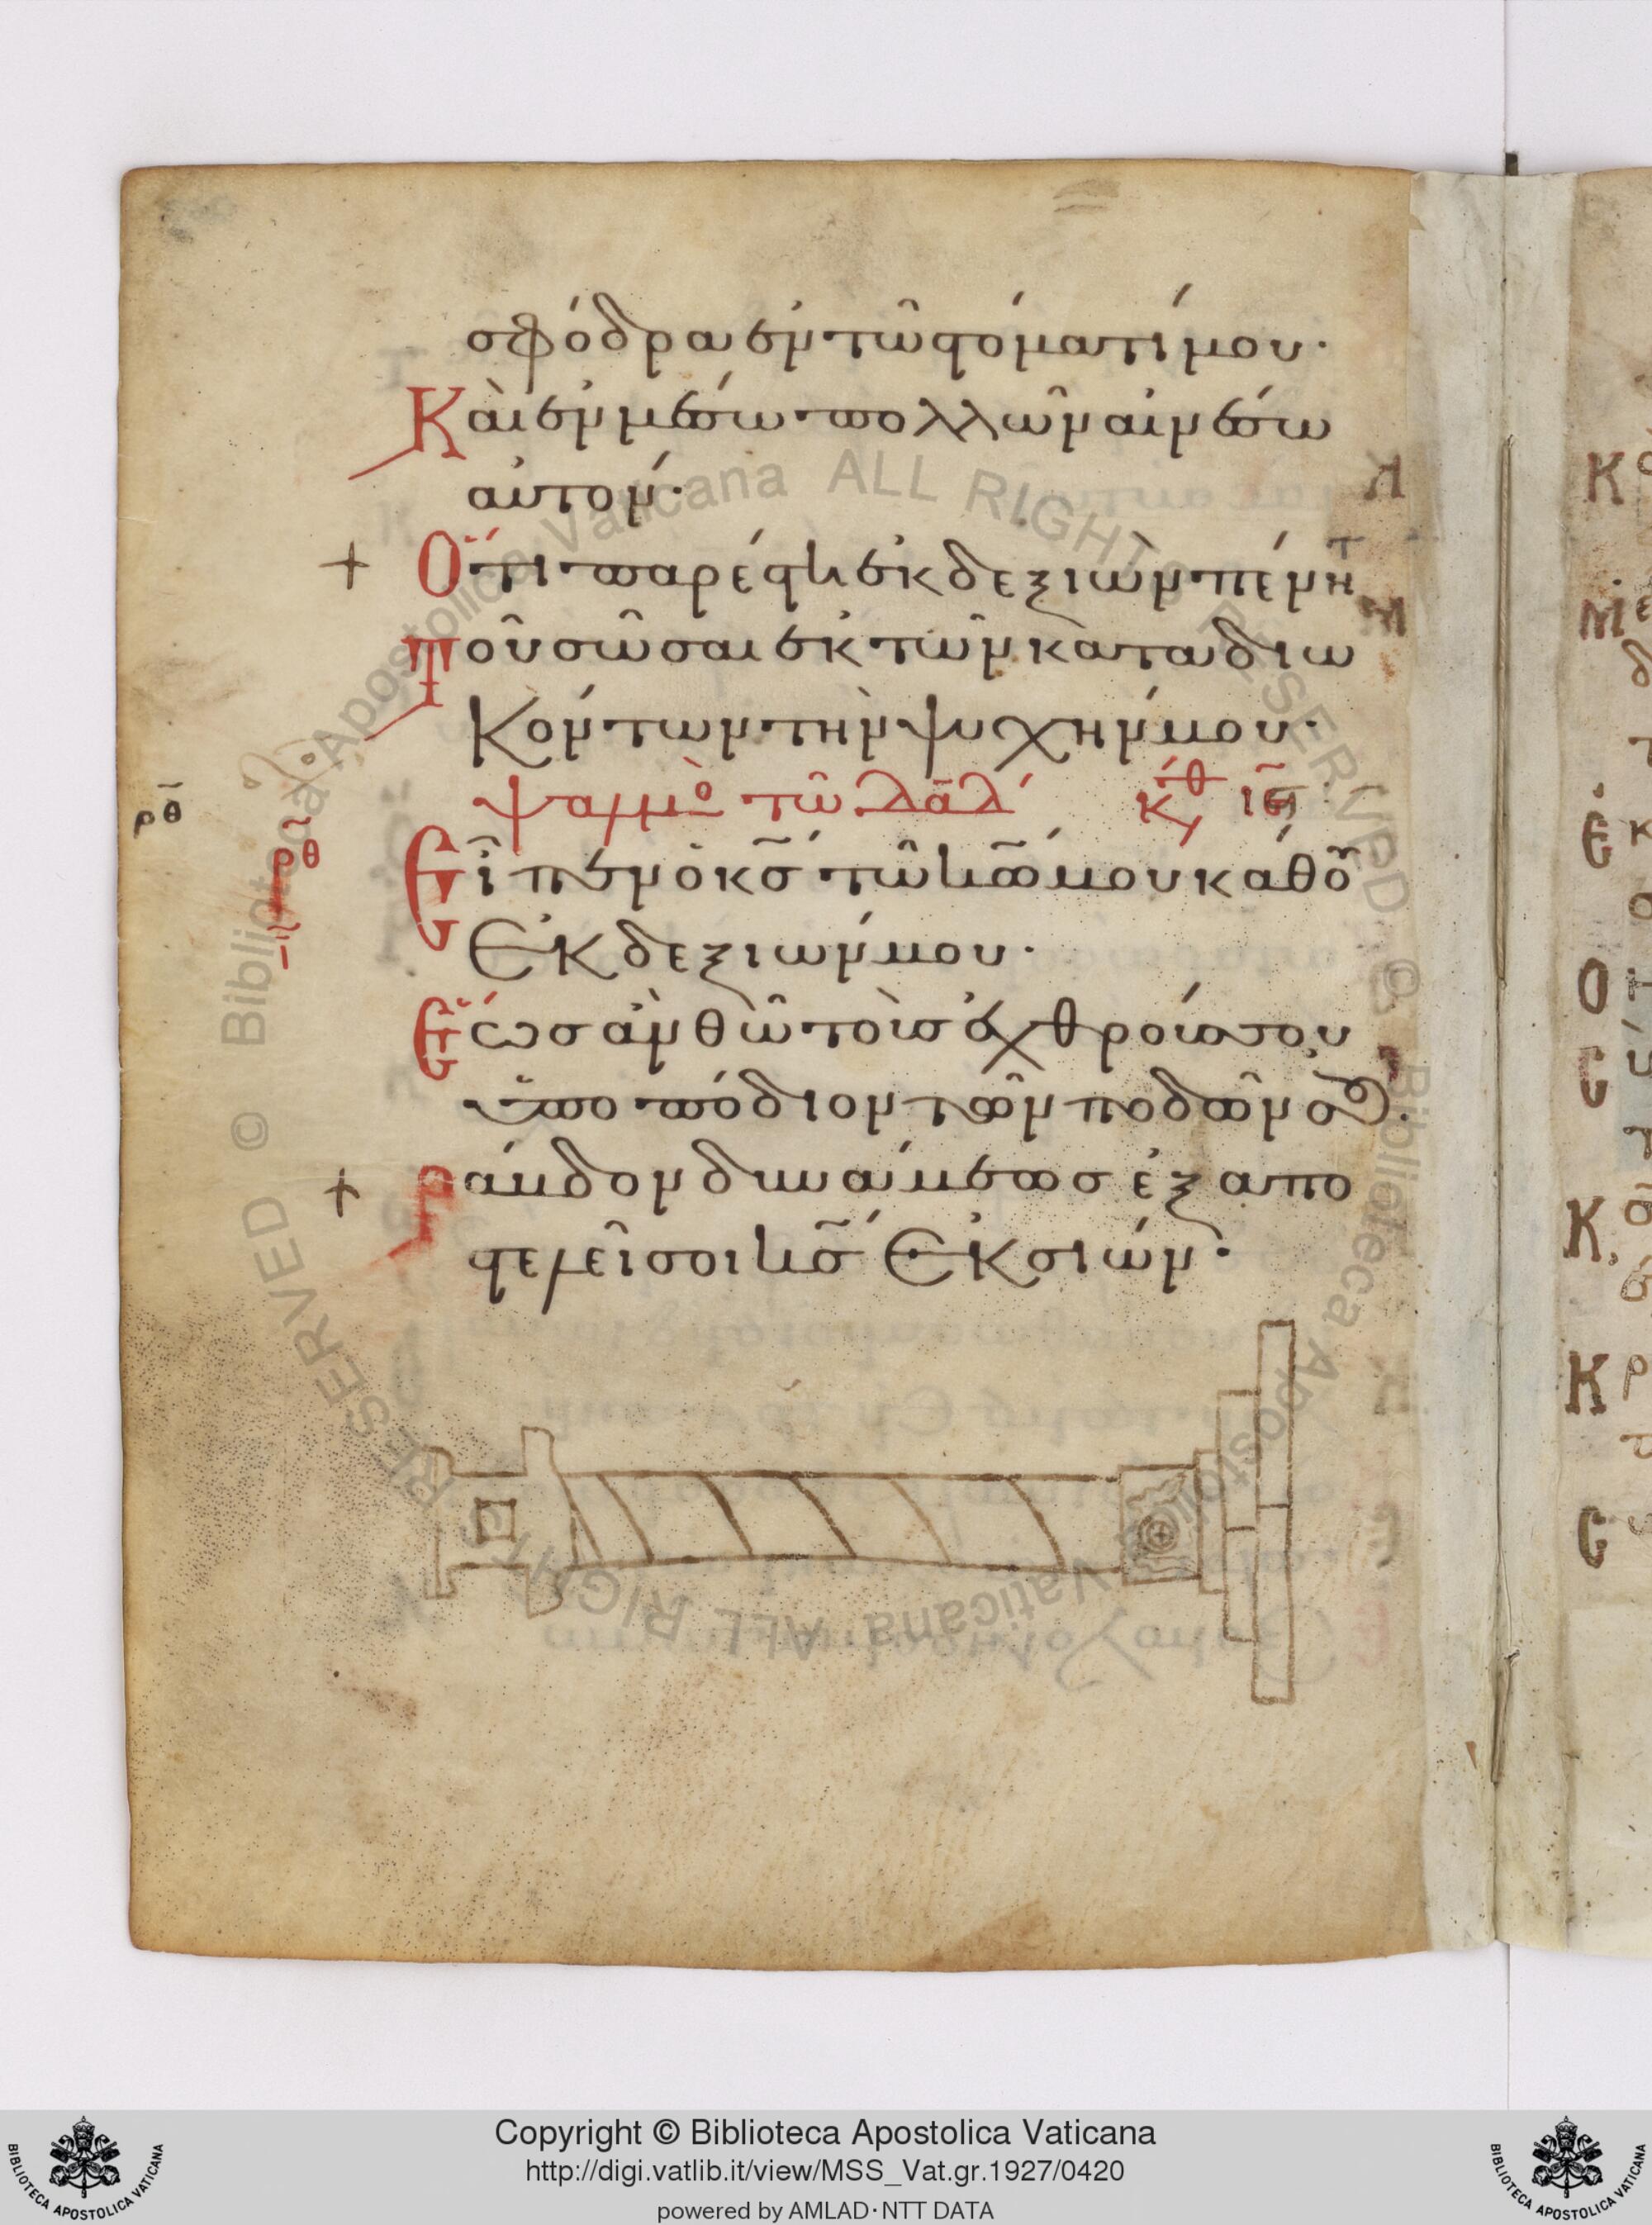 σφόδρα ἐν τῶ στόματί μου·
Καὶ ἐν μέσω πολλῶν αἰνέσω
αὐτόν·
Ὅτι παρέστη ἐκ δεξιῶν πένητ
Τοῦ σῶσαι ἐκ τῶν καταδιω
κόντων τὴν ψυχήν μου·
ρ̅θ̅
ρ̅θ̅
Εἶπεν ὁ κ̅ς̅ τῶ κ̅ω̅ μου κάθου
Ἐκ δεξιών μου·
Ἕως ἂν θῶ τοὺσ ἐχθρούσ σου
ὑποπόδιον τῶν ποδῶν σου·
Ράβδον δυνάμεωσ ἐξαπο
στελεῖ σοι κ̅ς̅ Ἐκ σιών·
K
Μ
Ε
Ο
C
Κ
Κ
C
© Biblioteca Apostolica Vaticana ALL RIGHTS RESERVED © Biblioteca Apostolica Vaticana ALL RIGHTS RESERVED
Copyright © Biblioteca Apostolica Vaticana
http://digi.vatlib.it/view/MSS_Vat.gr.1927/0420
powered by AMLAD·NTT DATA
BIBLIOTECA APOSTOLICA VATICANA
BIBLIOTECA APOSTOLICA VATICANA